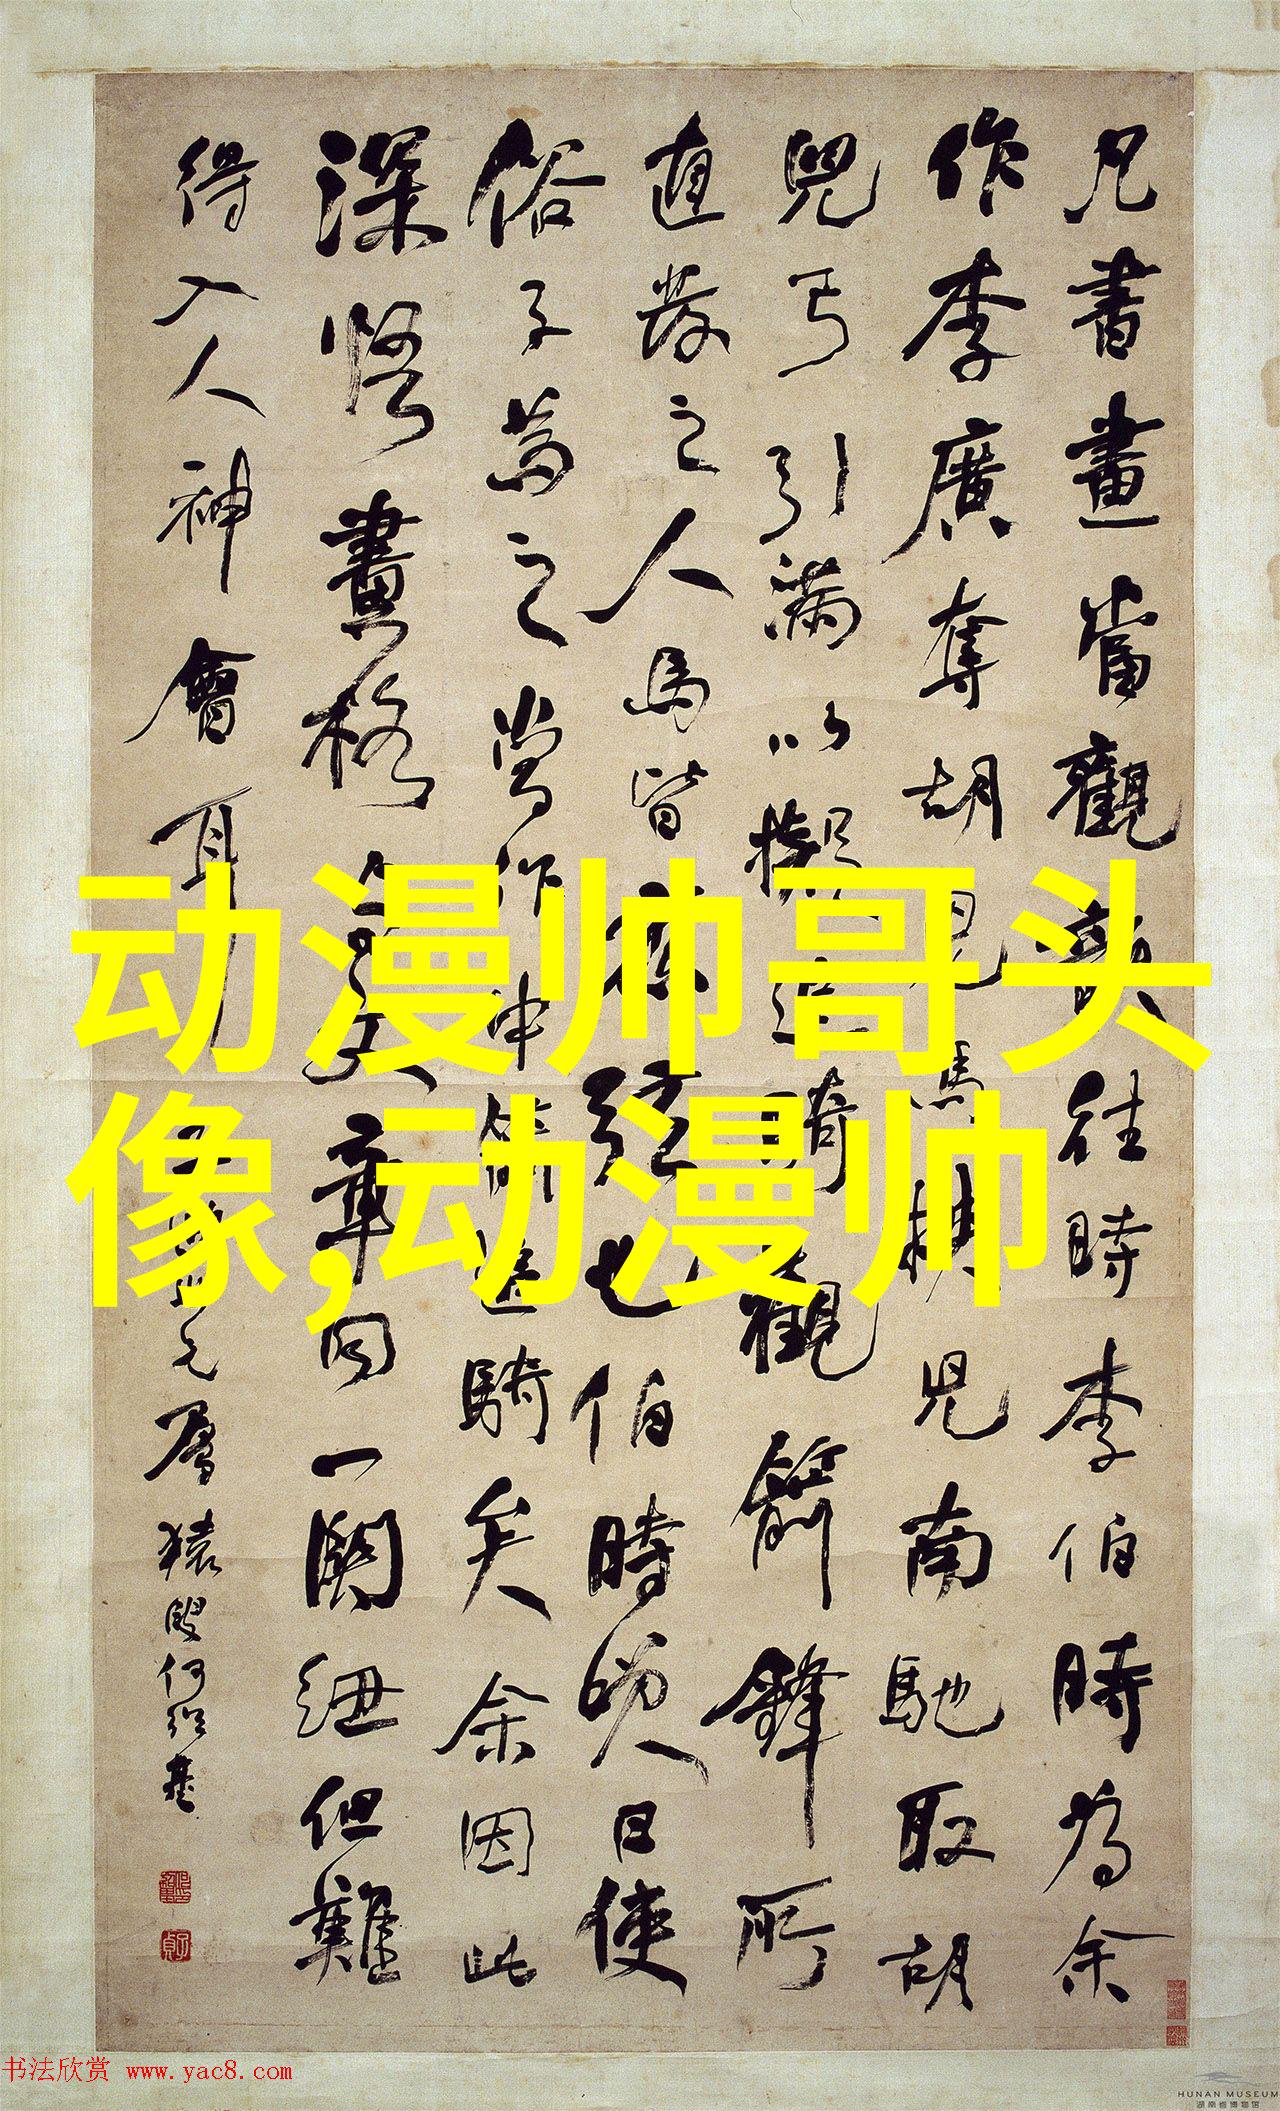 凡書畫當觀韻往時李伯時為余
作李廣奪胡兒馬挾兒南馳取胡
兒弓引滿以擬追騎觀箭鋒所
直發之人馬皆應弦也伯時笑曰使
俗子為之當作中箭追騎矣余因此
深悟畫格此與文章同一關紐但難
得入人神會耳
猿叟何紹基
动漫帅哥头
像,动漫帅
书法欣赏 www.yac8.com
HUNAN MUSEUM
湖南省博物馆